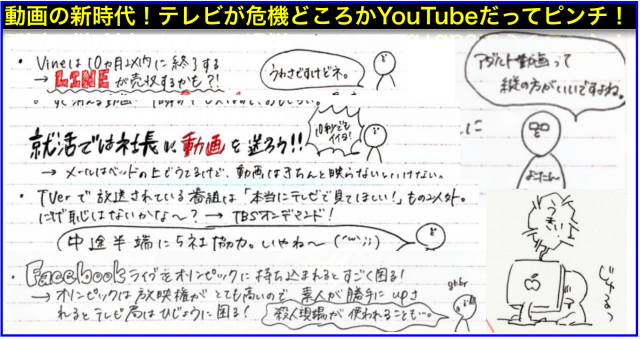 動画の新時代！テレビが危機どころかYouTubeだってピンチ！
・Vineは10カ月以内に終了する
→LINEが売収するかも?!
うわさですけどネ。
就活では社長に動画を送ろう!!
10秒でもイイヨ!
→メールはベッドの上でうてるけど、動画はきちんと映らないといけない。
・TVerで放送されている番組は「本当にテレビで見てほしい!」もの以外。
にげ恥はないかな〜?→TBSオンデマンド!
中途半端に5社協力。いやね〜(^ω^;;)
・Facebookライブをオリンピックに持ち込まれるとすごく困る!
→オリンピックは放映権がとても高いので、素人が勝手にupさ
れるとテレビ局はひじょうに困る!
殺人現場が使われることも…。
アダルト動画って
縦の方がいいですよね。